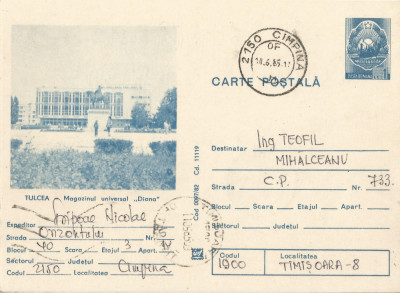 2150 CIMPINA
OF
CARTE POȘTALĂ
TULCEA Magazinul universal „Diana"
Expeditor Nicolae
Strada Nr. 5
Blocul 40 Scara Etajul 3 Apart. 14
Sectorul Județul
Codul 2150 Localitatea Cimpina
Cod 0097/82 Cd. 11119
Destinatar Ing TEOFIL
MIHALCEANU
Strada C.P. Nr. 733.
Blocul Scara Etajul Apart.
Sectorul Județul
Codul 1900 Localitatea
TIMIȘOARA-8